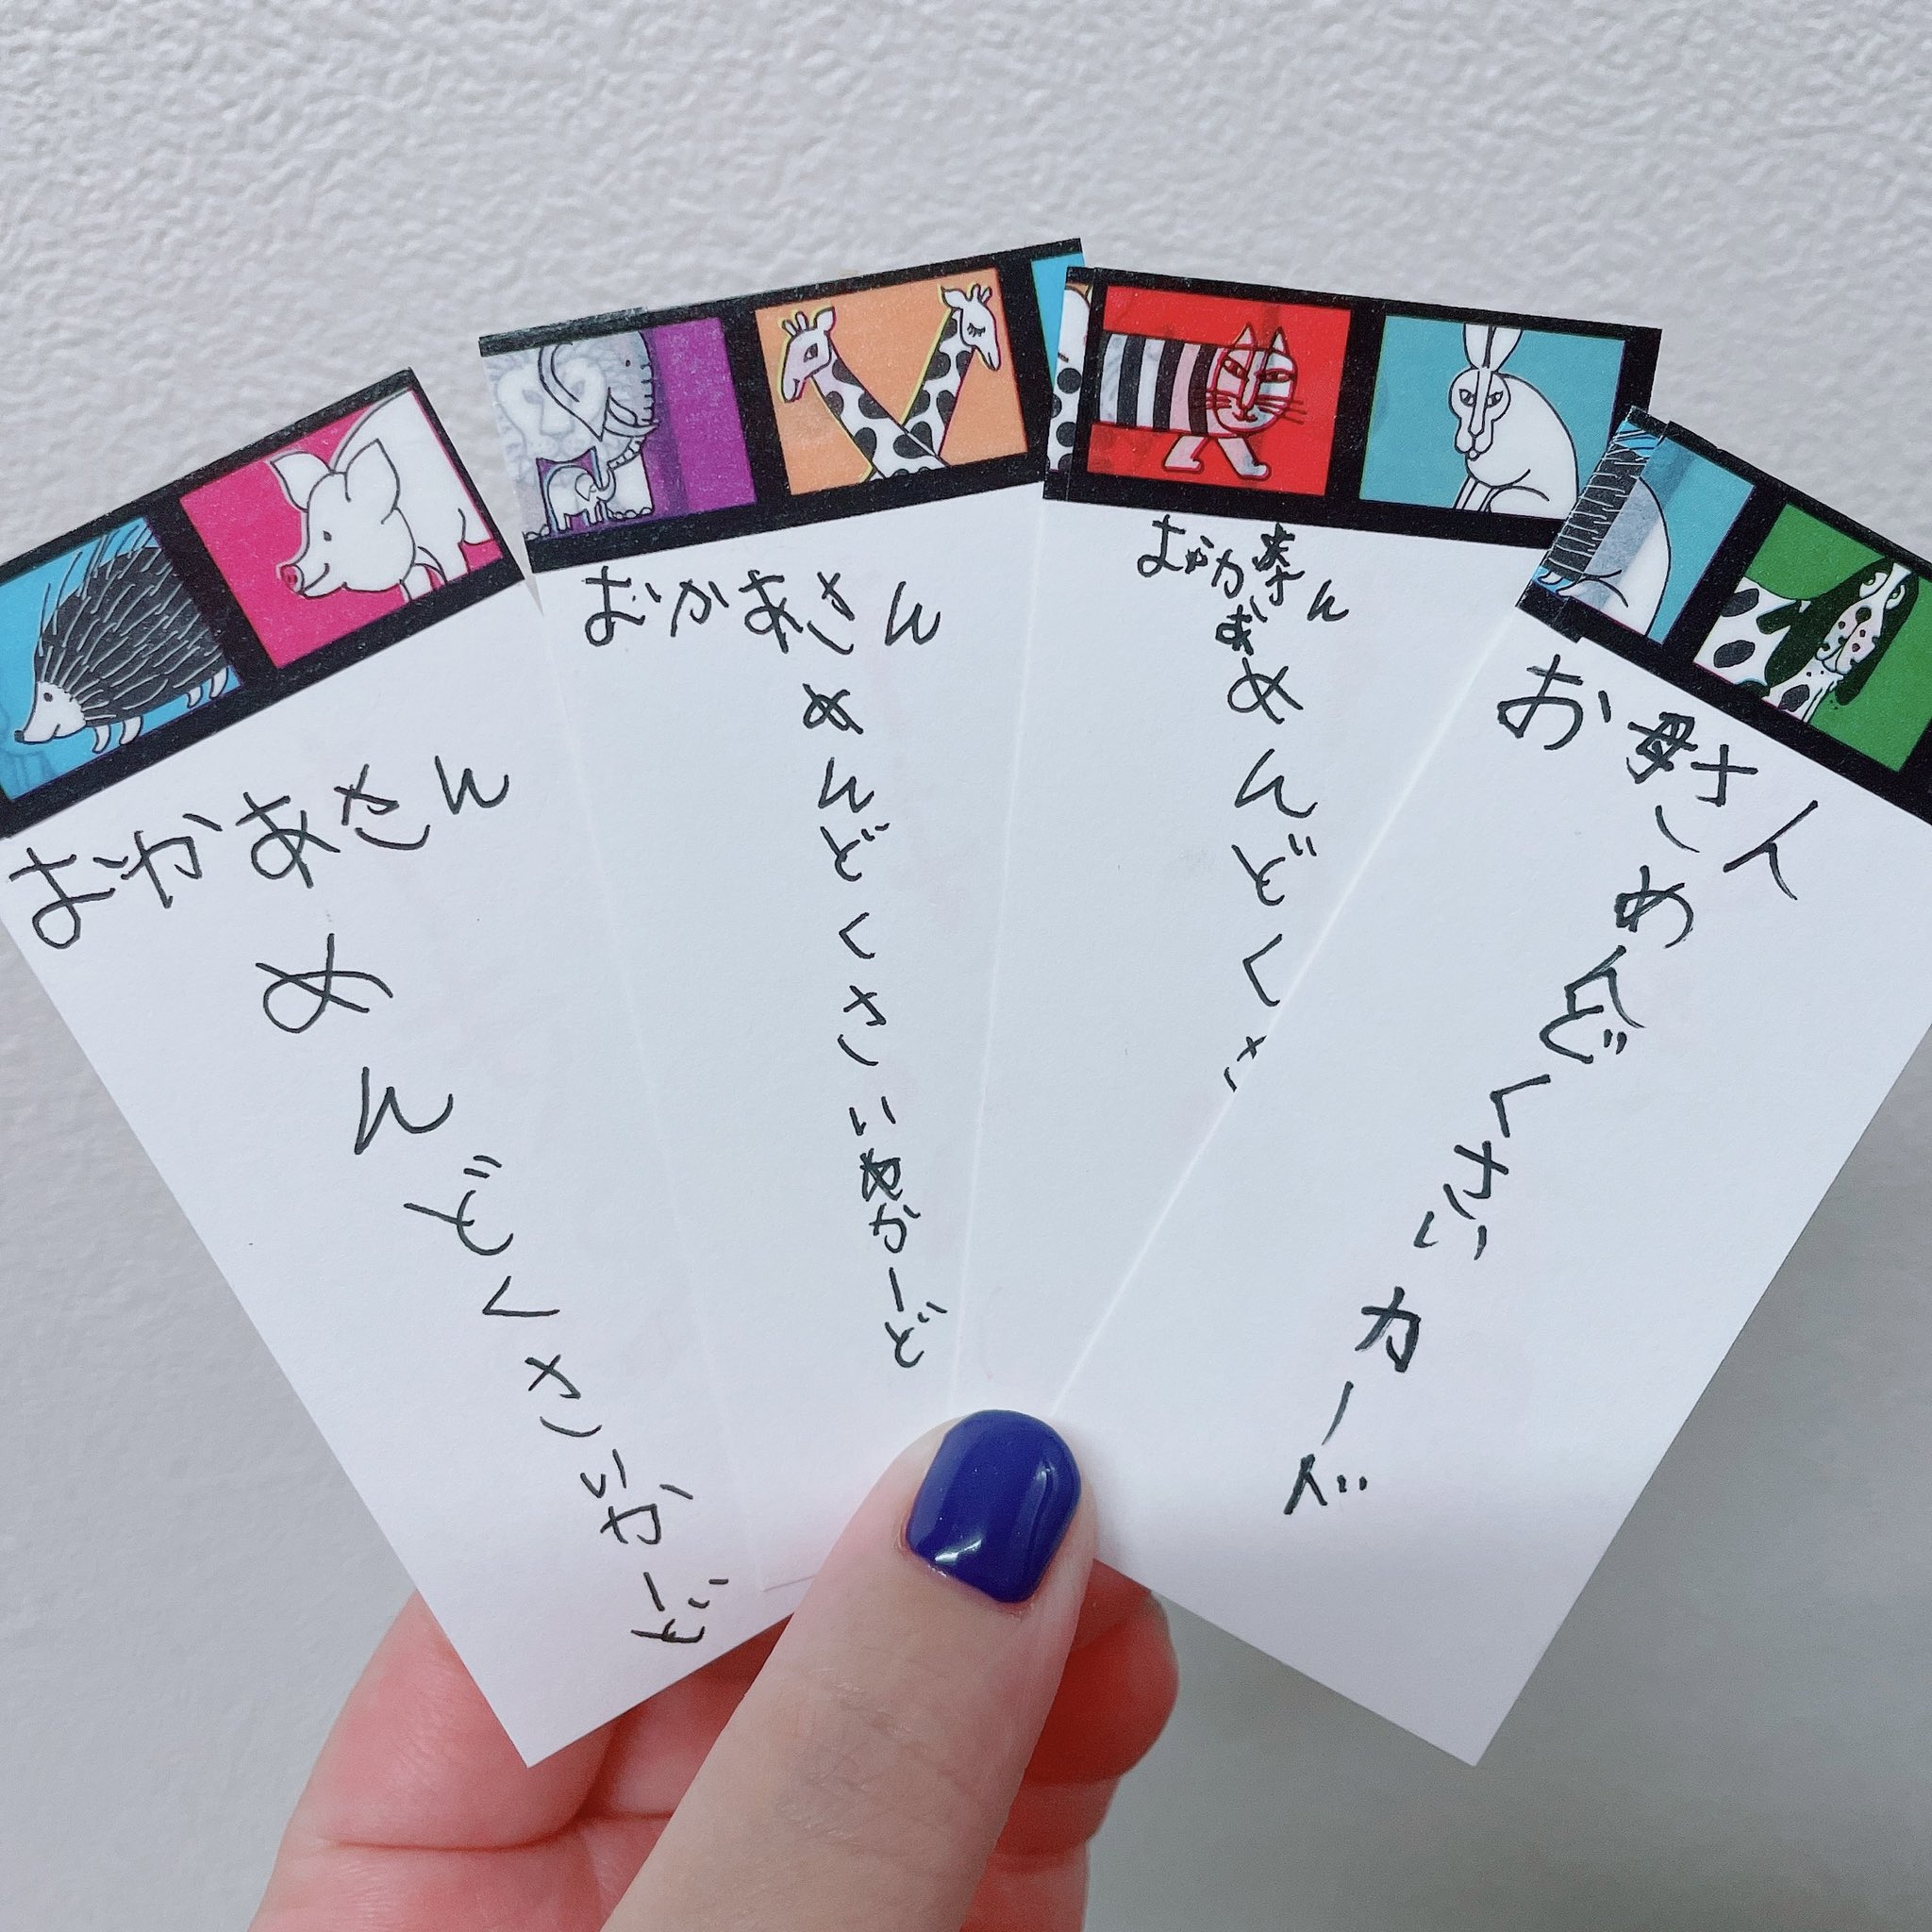 おかあさん
めんどくさいかーど
おかあさん
めんどくさい
かーど
おかあさん
めんどくさ
お母さん
めんどくさい
カード